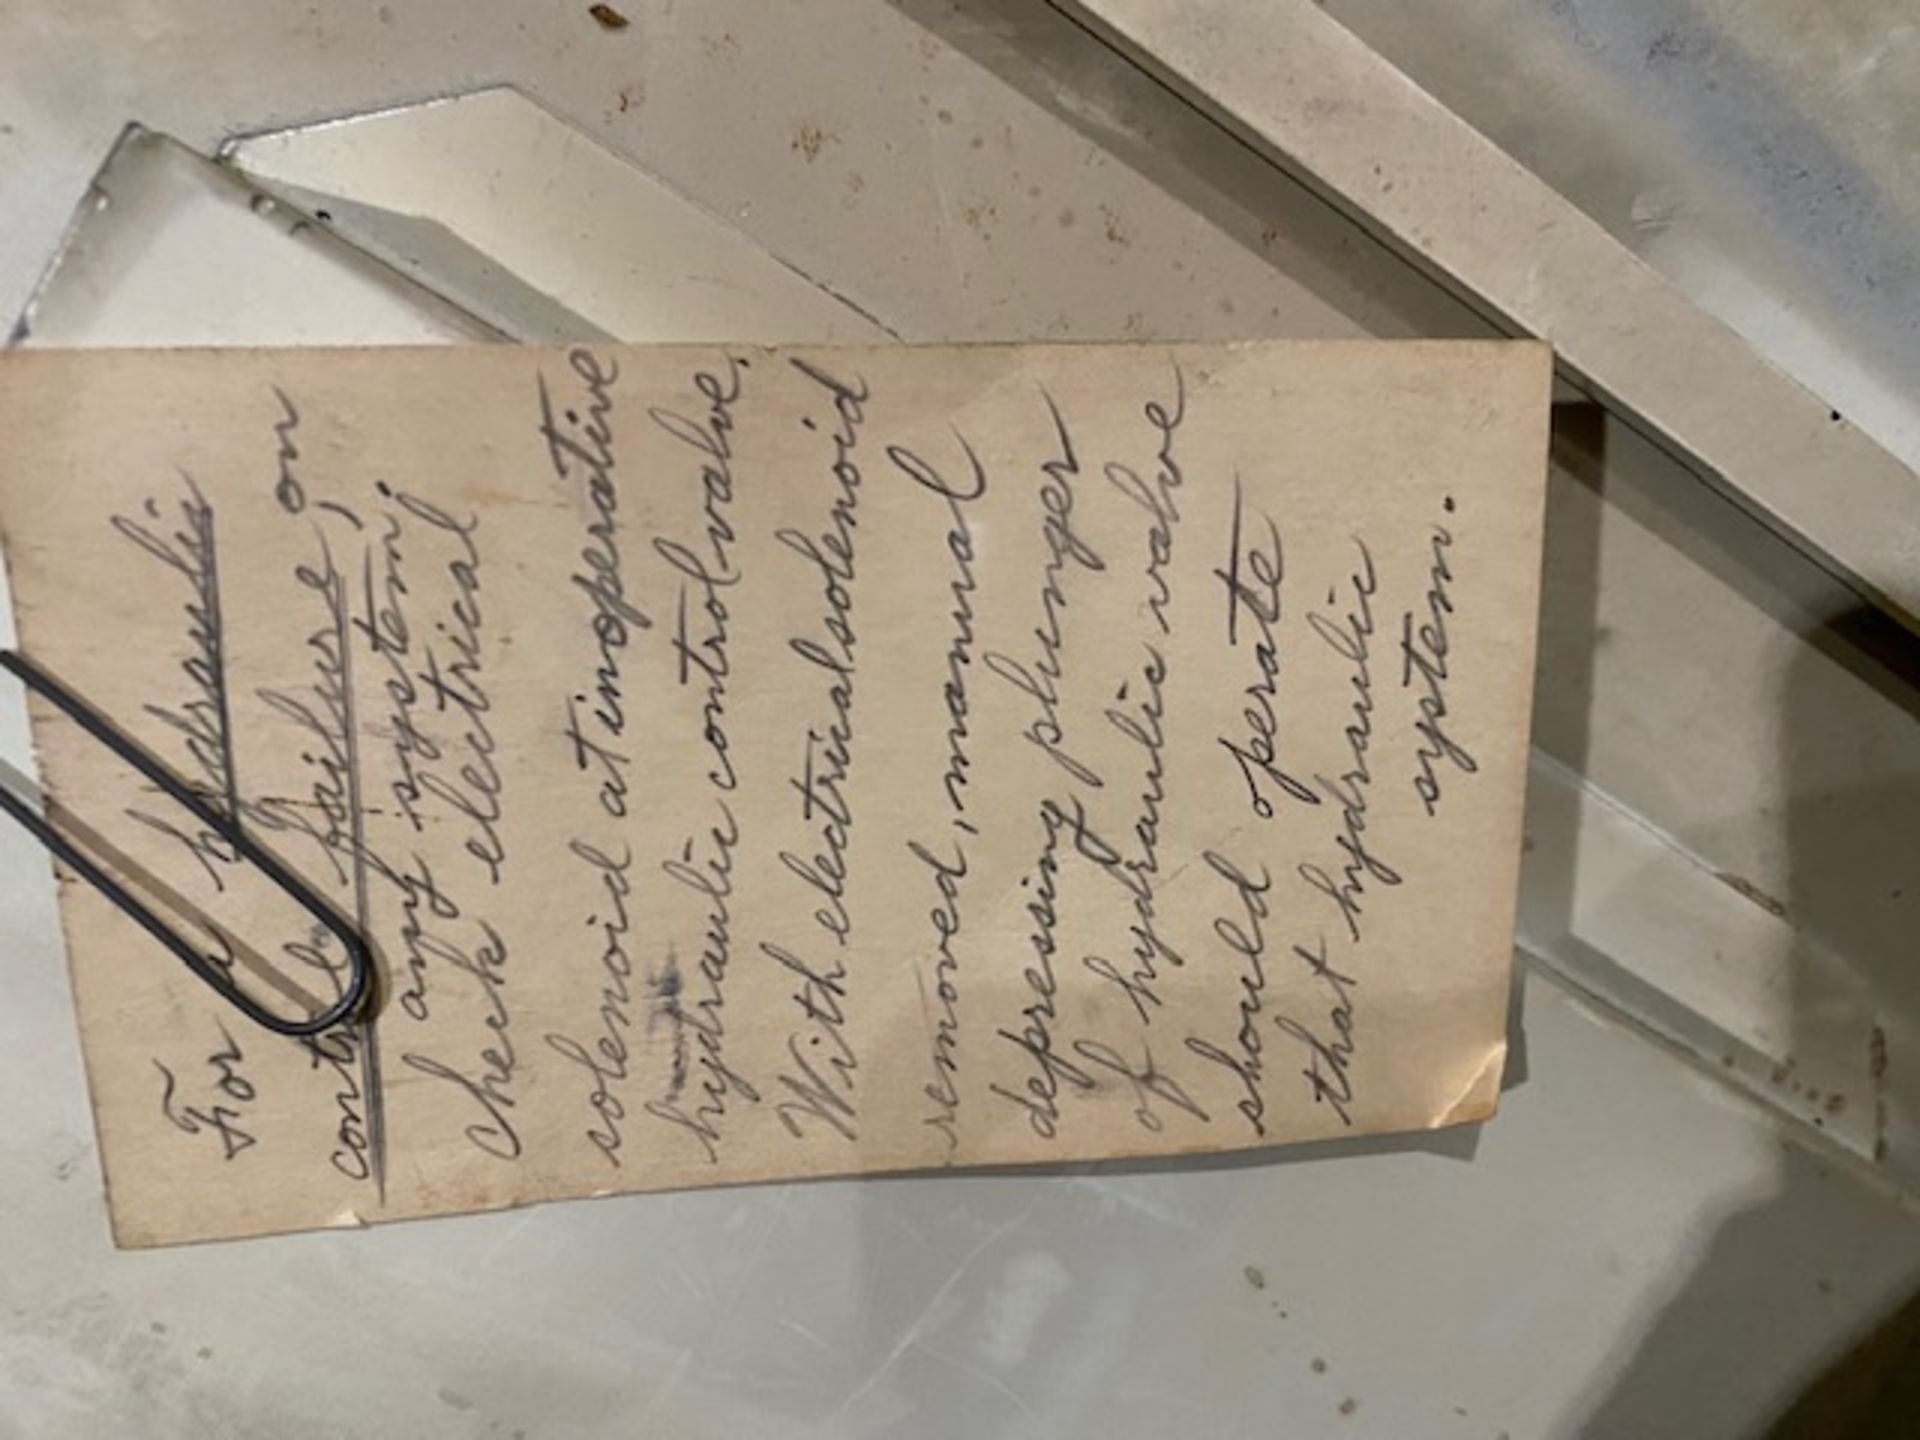 For a hydraulic
control failure, on
any system;
Check electrical
solenoid at inoperative
hydraulic control valve.
With electrical solenoid
removed, manual
depressing plunger
of hydraulic valve
should operate
that hydraulic
system.